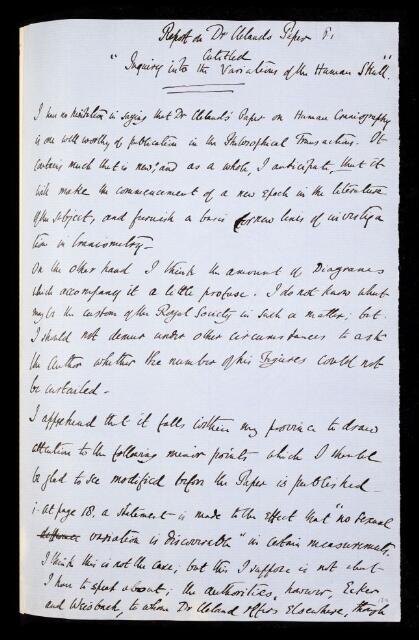 Report on Dr Clelands Paper
Entitled
"Inquiry into the Variations of the Human Skull".
I have no hesitation in saying that Dr Clelands' Paper on Human Craniography
is one well worthy of publication in the Philosophical Transactions. It
contains much that is new, and as a whole, I anticipate, that it
will make the commencement of a new Epoch in the literature
of the subject, and furnish a basis for new lines of investiga
tion in Craniometry -
On the other hand I think the amount of Diagrams
which accompany it a little profuse. I do not know what
may be the custom of the Royal Society in such a matter; but
I should not demur under other circumstances to ask
the Author whether the number of his Figures could not
be curtailed -
I apprehend that it falls within my province to draw
attention to the following minor points which I should
be glad to see modified before the Paper is published -
i. at page 18, a statement is made to the effect that "no sexual
variation is discoverable" in certain measurements.
I think this is not the case; but this I suppose is not what
I have to speak about; the authorities, however, Ecker
and Weisbach, to whom Dr Cleland refers elsewhere, though